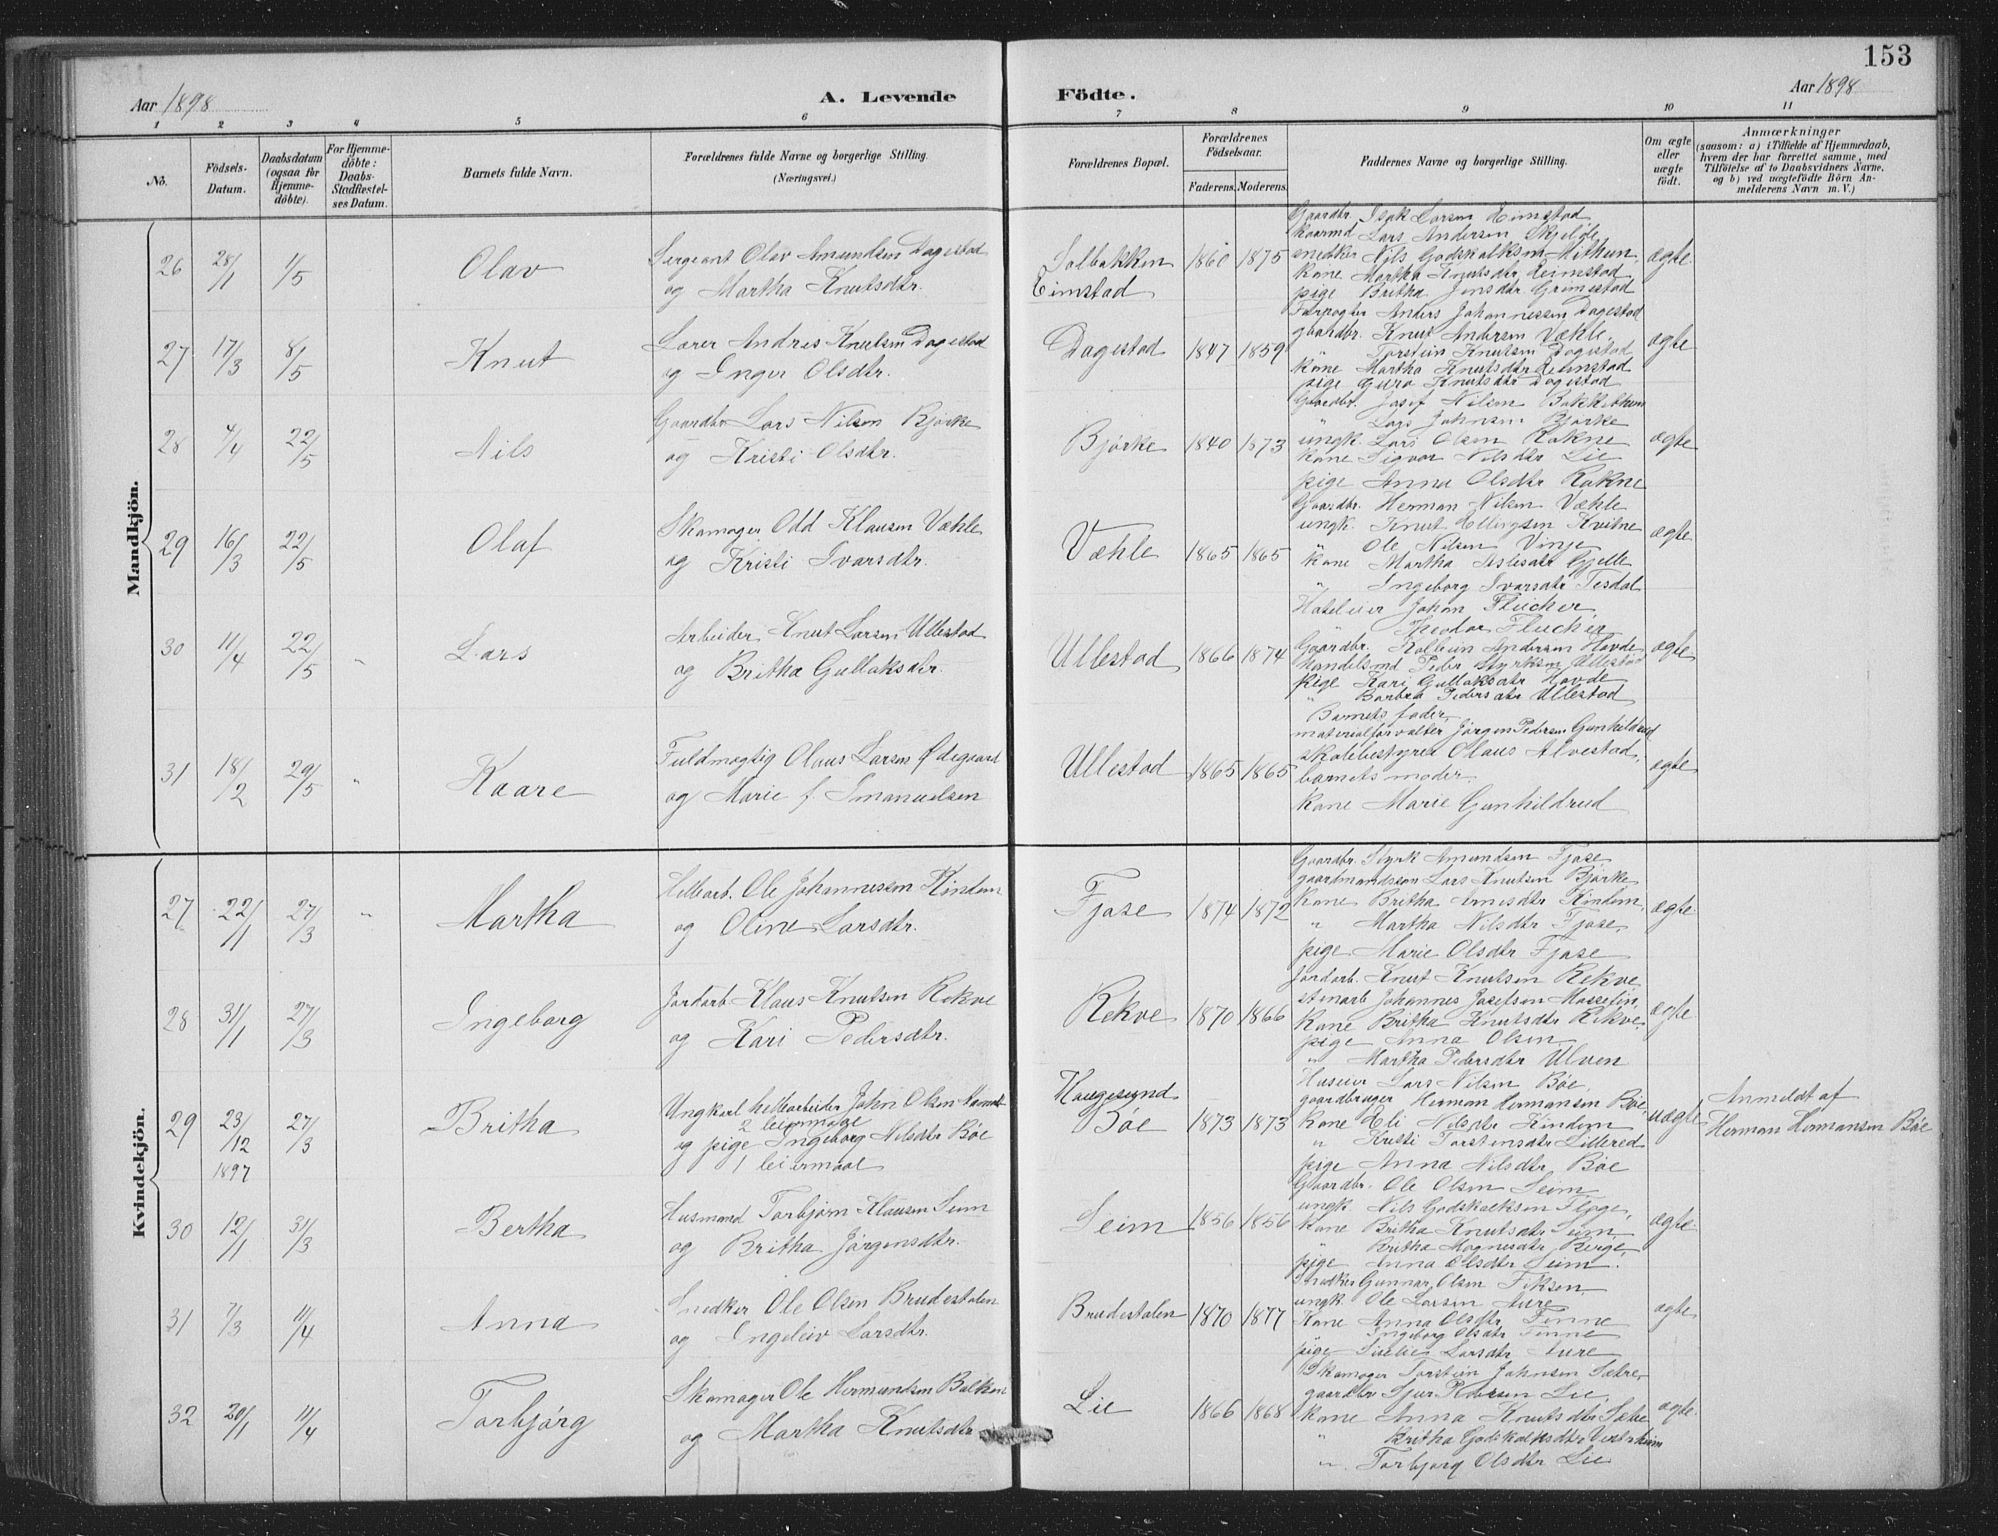 153
Aar 1898
A. Levende Födte.
Aar 1898
1 2 3 4 5 6 7 8 9 10 11
No.
Födsels-Datum.
Daabsdatum (ogsaa for Hjemmedöbte).
For Hjemmedöbte: Daabs-Stadfæstelses Datum.
Barnets fulde Navn.
Forældrenes fulde Navne og borgerlige Stilling. (Næringsvei.)
Forældrenes Bopæl.
Forældrenes Födselsaar.
Faderens. Moderens.
Faddernes Navne og borgerlige Stilling.
Om ægte eller uægte födt.
Anmærkninger
(saasom: a) i Tilfælde af Hjemmedaab, hvem der har forrettet samme, med Tilföielse af to Daabsvidners Navne, og b) ved uægtefödte Börn Anmelderens Navn m. V.)
Mandkjön.
26 28/1 1/5 Olav
Sergeant Olav Amundsen Dagestad
og Martha Knutsdtr.
Solbakken
Eimstad
1860 1875
Gaardbr. Isak Larsen Eimstad
Kaarmd Lars Andersen Skjelde
snedker Nils Godskalksen Mithun
kone Martha Knutsdtr Eimstad
pige Britha Jensdtr Grimestad
ægte
27 17/3 8/5 Knut
Lærer Andres Knutsen Dagestad
og Inger Olsdtr.
Dagestad 1847 1859
Forpagter Anders Johannessen Dagestad
gaardbr. Knut Andersen Væhle
" Torstein Knutsen Dagestad
kone Martha Knutsdtr Eimstad
pige Guro Knutsdtr Dagestad
ægte
28 4/4 22/5 Nils
Gaardbr Lars Nilsen Bjørke
og Kristi Olsdtr.
Bjørke 1840 1873
Gaardbr. Josef Nilsen Bakkethun
" Lars Johnsen Bjørke
ungk. Lars Olsen Rokne
kone Sigvor Nilsdtr Lie
pige Anna Olsdtr Rokne
ægte
29 16/3 22/5 Olaf
Skomager Odd Klausen Væhle
og Kristi Ivarsdtr.
Væhle 1865 1865
Gaardbr. Herman Nilsen Væhle
ungk. Knut Ellingsen Kvitne
" Ole Nilsen Vinje
kone Martha Aslesdtr Gjelle
" Ingeborg Ivarsdtr Tesdal
ægte
30 11/4 22/5 " Lars
Arbeider Knut Larsen Ullestad
og Britha Gullaksdtr.
Ullestad 1866 1874
Hoteleier Johan Fleischer
" Theodor Fleischer
Gaardbr. Kolbein Andersen Hovde
Handelsmd Peder Styrksen Ullestad
pige Kari Gullaksdtr Hovde
" Barbra Pedersdtr Ullestad
ægte
31 18/2 29/5 " Kaare
Fuldmægtig Olaus Larsen Ødegaard
og Marie f. Emanuelsen
Ullestad 1865 1865
Barnets fader,
materialforvalter Jørgen Pedersen Gunhildrud
skolebestyrer Olaus Alvestad,
barnets moder
kone Marie Gunhildrud
ægte
Kvindekjön.
27 22/1 27/3 " Martha
Hellearb. Ole Johannessen Kindem
og Oline Larsdtr.
Fjose 1874 1872
Gaardbr. Styrk Amundsen Fjose
gaardmandssøn Lars Knutsen Bjørke
kone Britha Arnesdtr Kindem,
" Martha Nilsdtr Fjose,
pige Marie Olsdtr Fjose
ægte
28 31/1 27/3 Ingeborg
Jordarb. Klaus Knutsen Rekve
og Kari Pedersdtr.
Rekve 1870 1866
Jordarb. Knut Knutsen Rekve
stenarb Johannes Josefsen
kone Britha Knutsdtr Rekve,
pige Anna Olsen
" Martha Pedersdtr Ulven
ægte
29 23/12 1897 27/3 Britha
Ungkarl hellearbeider John Olsen
2 leiermaal
og pige Ingeborg Nilsdtr Bøe
1 leiermaal
Haugesund
Bøe 1873 1873
Huseier Lars Nilsen Bøe,
gaardbruger Herman Hermansen Bøe,
kone Eli Nilsdtr Kindem
" Kristi Torstensdtr Lillered
pige Anna Nilsdtr Bøe
uægte
Anmeldt af
Herman Hermansen Bøe
30 12/1 31/3 Bertha
Husmand Torbjørn Klausen Seim
og Britha Jørgensdtr.
Seim 1856 1856
Gaardbr. Ole Olsen Seim
ungk Nils Godskalksen Fløge,
kone Britha Knutsdtr Seim,
" Britha Magnesdtr Berge,
pige Anna Olsdtr Seim.
ægte
31 7/3 11/4 Anna
Snedker Ole Olsen Brudestolen
og Ingeleiv Larsdtr.
Brudestolen 1870 1877
Snedker Gunnar Olsen
ungk. Ole Larsen Aure
Kone Anna Olsdtr Finne
Ingeborg Olsdtr Finne
pige Larsdtr Aure
ægte
32 20/1 11/4 Torbjørg
Skomager Ole Hermundsen
og Martha Knutsdtr
Lie 1866 1868
Skomager Torstein Johnsen Sætre,
gaardbr Sjur Pedersen Lie,
kone Anna Knutsdtr Sætre
" Britha Godskalksdtr Vestrheim
" Torbjørg Olsdtr Lie
ægte